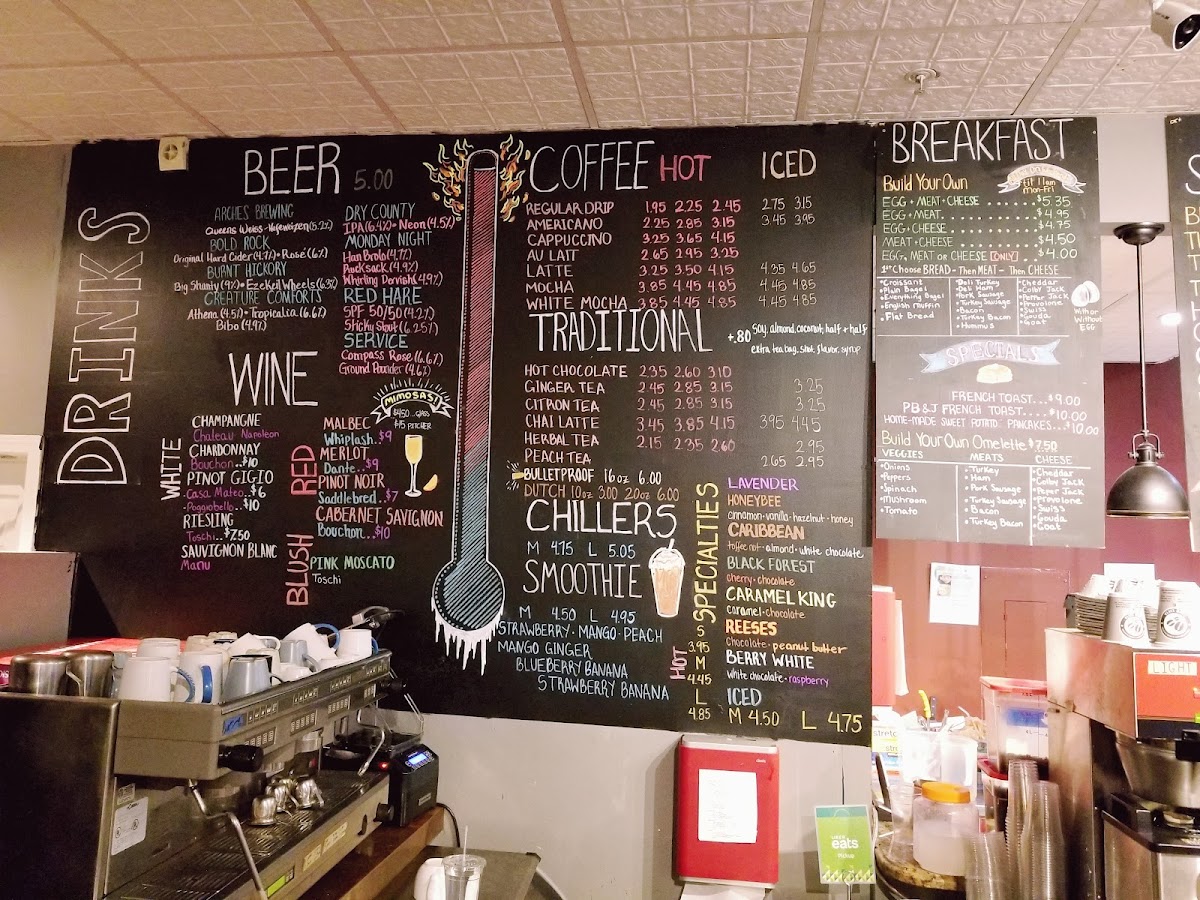 DRINKS
BEER 5.00
ARCHES BREWING
Queens Weiss - Hefeweizen (5.2%)
BOLD ROCK
Original Hard Cider (4.7%) • Rosé (6%)
BURNT HICKORY
Big Shanty (9%) • Ezekeil Wheels (6.3%)
CREATURE COMFORTS
Athena (4.5%) • Tropicalia (6.6%)
Bibo (4.9%)
DRY COUNTY
IPA (6.4%) • Neon (4.5%)
MONDAY NIGHT
Han Brolo (4.7%)
Rucksack (4.9%)
Whirling Dervish (4.9%)
RED HARE
SPF 50/50 (4.2%)
Sticky Stout (6.25%)
SERVICE
Compass Rose (6.6%)
Ground Pounder (4.6%)
WINE
WHITE
CHAMPAGNE
Chateau Napoleon
CHARDONNAY
Bouchon..$10
PINOT GIGIO
Casa Mateo..$6
Poggiobello..$10
RIESLING
Toschi..$7.50
SAUVIGNON BLANC
Manu
RED
MALBEC
Whiplash..$9
MERLOT
Dante..$9
PINOT NOIR
Saddlebred..$7
CABERNET SAVIGNON
Bouchon..$10
BLUSH
PINK MOSCATO
Toschi
MIMOSAS!
$4.50 ... GLASS
$15 PITCHER
COFFEE HOT ICED
REGULAR DRIP 1.95 2.25 2.45 2.75 3.15
AMERICANO 2.25 2.85 3.15 3.45 3.95
CAPPUCCINO 3.25 3.65 4.15
AU LAIT 2.65 2.95 3.25
LATTE 3.25 3.50 4.15 4.35 4.65
MOCHA 3.85 4.45 4.85 4.45 4.85
WHITE MOCHA 3.85 4.45 4.85 4.45 4.85
TRADITIONAL
+.80 soy, almond, coconut, half + half
extra tea bag, shot, flavor, syrup
HOT CHOCOLATE 2.35 2.60 3.10
GINGER TEA 2.45 2.85 3.15 3.25
CITRON TEA 2.45 2.85 3.15 3.25
CHAI LATTE 3.45 3.85 4.15 3.95 4.45
HERBAL TEA 2.15 2.35 2.60 2.95
PEACH TEA 2.65 2.95
BULLETPROOF 16oz 6.00
DUTCH 10oz 3.00 20oz 6.00
CHILLERS
M 4.75 L 5.05
SMOOTHIE
M 4.50 L 4.95
STRAWBERRY • MANGO • PEACH
MANGO GINGER
BLUEBERRY BANANA
STRAWBERRY BANANA
SPECIALTIES
LAVENDER
HONEYBEE
cinnamon-vanilla-hazelnut-honey
CARIBBEAN
toffee nut-almond-white chocolate
BLACK FOREST
cherry-chocolate
CARAMEL KING
caramel-chocolate
REESES
Chocolate-peanut butter
BERRY WHITE
White chocolate-raspberry
HOT
S
3.95
M
4.45
L
4.85
ICED
M 4.50 L 4.75
BREAKFAST
Build Your Own
til 11am
mon-Fri
EGG + MEAT + CHEESE ....... $5.35
EGG + MEAT ....... $4.95
EGG + CHEESE ....... $4.75
MEAT + CHEESE ....... $4.50
EGG, MEAT or CHEESE [ONLY] ... $4.00
1st Choose BREAD - Then MEAT - Then CHEESE
•Croissant
•Plain Bagel
•Everything Bagel
•English Muffin
•Flat Bread
•Deli Turkey
•Deli Ham
•Pork Sausage
•Turkey Sausage
•Bacon
•Turkey Bacon
•Hummus
•Cheddar
•Colby Jack
•Pepper Jack
•Provolone
•Swiss
•Gouda
•Goat
With or
Without
EGG
SPECIALS
FRENCH TOAST...$9.00
PB&J FRENCH TOAST....$10.00
HOME-MADE SWEET POTATO PANCAKES...$10.00
Build Your Own Omelette $7.50
VEGGIES MEATS CHEESE
•Onions
•Peppers
•Spinach
•Mushroom
•Tomato
•Turkey
•Ham
•Pork Sausage
•Turkey Sausage
•Bacon
•Turkey Bacon
•Cheddar
•Colby Jack
•Peper Jack
•Provolone
•Swiss
•Gouda
•Goat
LIGHT
Uber
eats